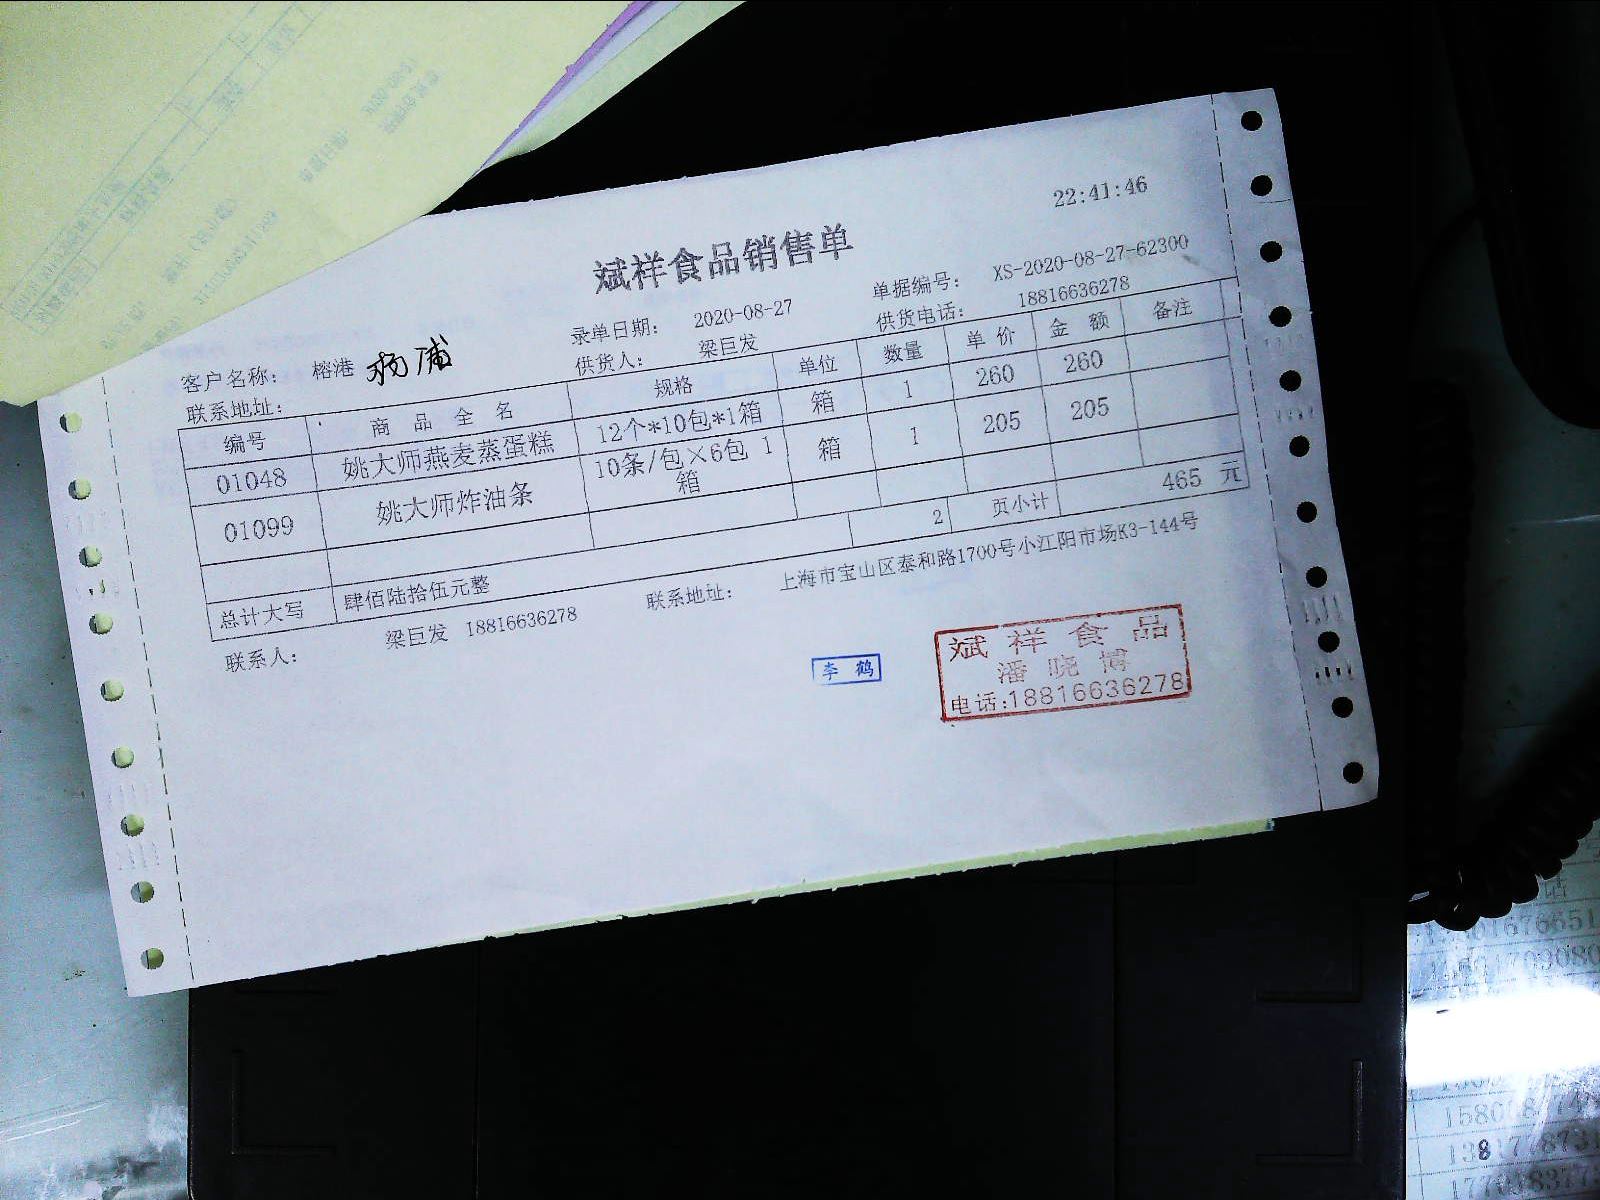 22:41:46
斌祥食品销售单
录单日期: 2020-08-27 单据编号: XS-2020-08-27-62300
客户名称: 榕港 杨浦 供货人: 梁巨发 供货电话: 18816636278
联系地址:
编号 商品全名 规格 单位 数量 单价 金额 备注
01048 姚大师燕麦蒸蛋糕 12个*10包*1箱 箱 1 260 260
01099 姚大师炸油条 10条/包×6包 1箱 箱 1 205 205
2 页小计 465 元
总计大写 肆佰陆拾伍元整
联系人: 梁巨发 18816636278 联系地址: 上海市宝山区泰和路1700号小江阳市场K3-144号
李鹤
斌祥食品
潘晓博
电话:18816636278